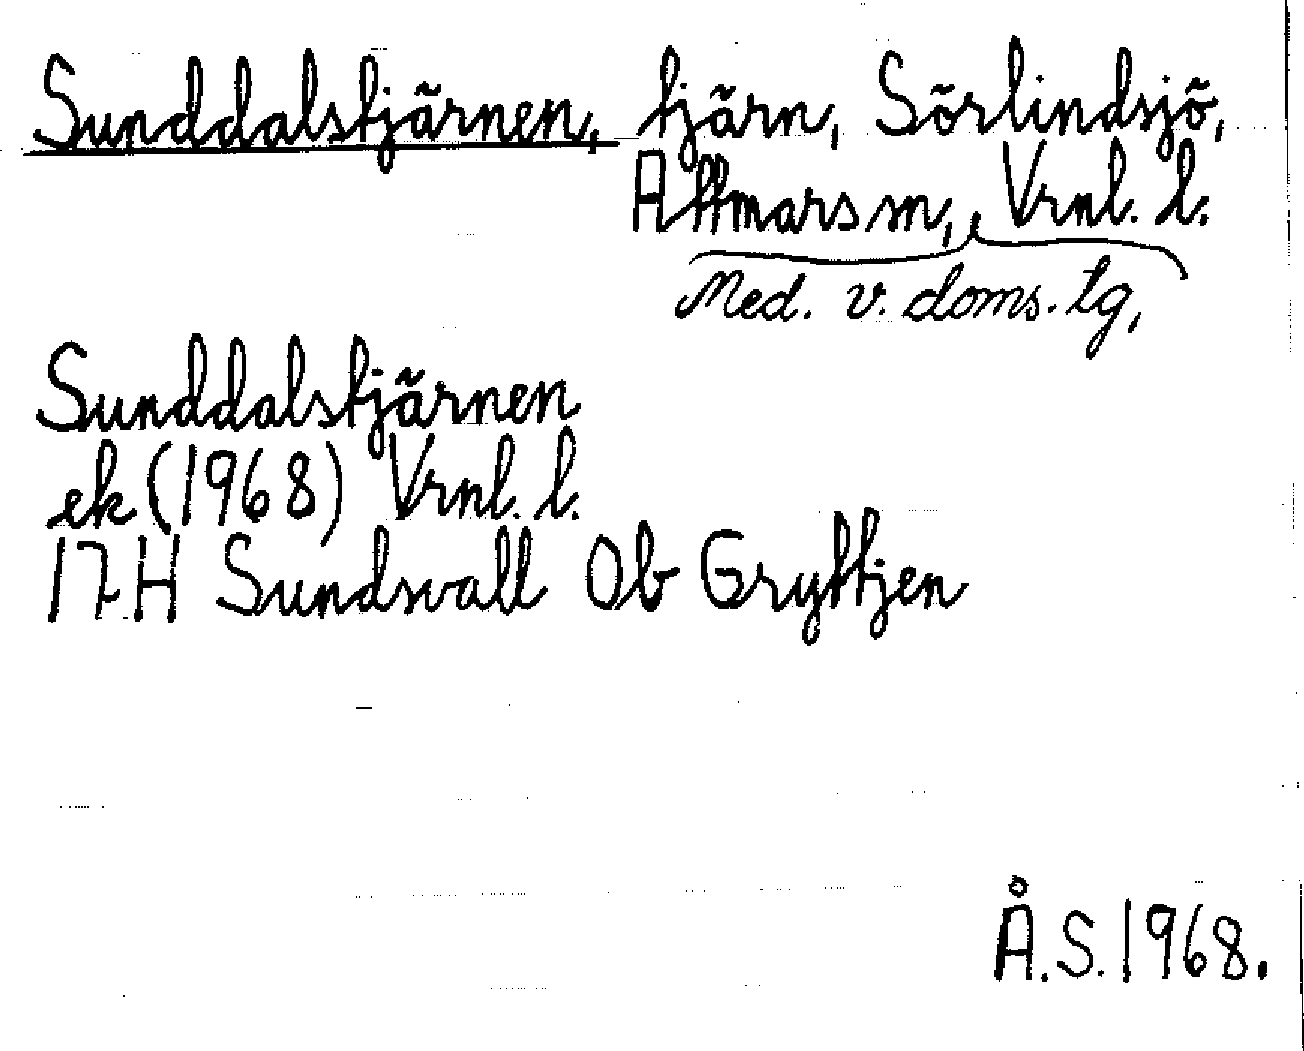 Sunddalstjärnen, tjärn, Sörlindsjö,
Attmars sn, Vrnl. l.
Med. v. doms. tg,
Sunddalstjärnen
ek (1968) Vrnl. l.
17 H Sundsvall Ob Gryttjen
Å.S. 1968.